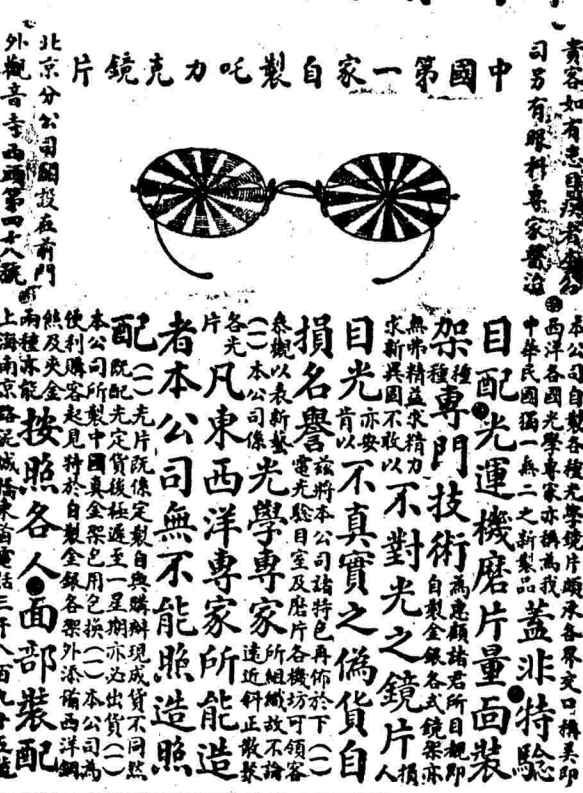 中國第一家自製吒力克鏡片
貴客如有患目疾者本公
司另有眼科專家醫治
北京分公司開設在前門
外觀音寺西頭第四十八號
本公司自製各種光學鏡片頗承各界交口稱美即
西洋各國光學專家亦稱為我
中華民國獨一無二之新製品
蓋非特驗
目配光運機磨片量面裝
架種種專門技術為惠顧諸君所目覩即
自製金銀各式鏡架亦
無弗精益求精力
求新異固不敢以
不對光之鏡片損人
目光亦安肯以不真實之偽貨自
損名譽茲將本公司諸特色再佈於下(一)
電光驗目室及磨片各機坊可領客
參觀以表新藝
(一)本公司係光學專家所組織故不論
遠近斜正散聚
各光片凡東西洋專家所能造
者本公司無不能照造照
配(一)光片既係定製自與購辦現成貨不同然
既配光定貨後極遲至一星期亦必出貨(一)
本公司所製中國真金架包用包換(一)本公司為
便利購客起見特於自製金銀各架外添備西洋鋼
絲及夾金
兩種亦能按照各人面部裝配
上海南京路泥城橋東首電話三千八百九十五號